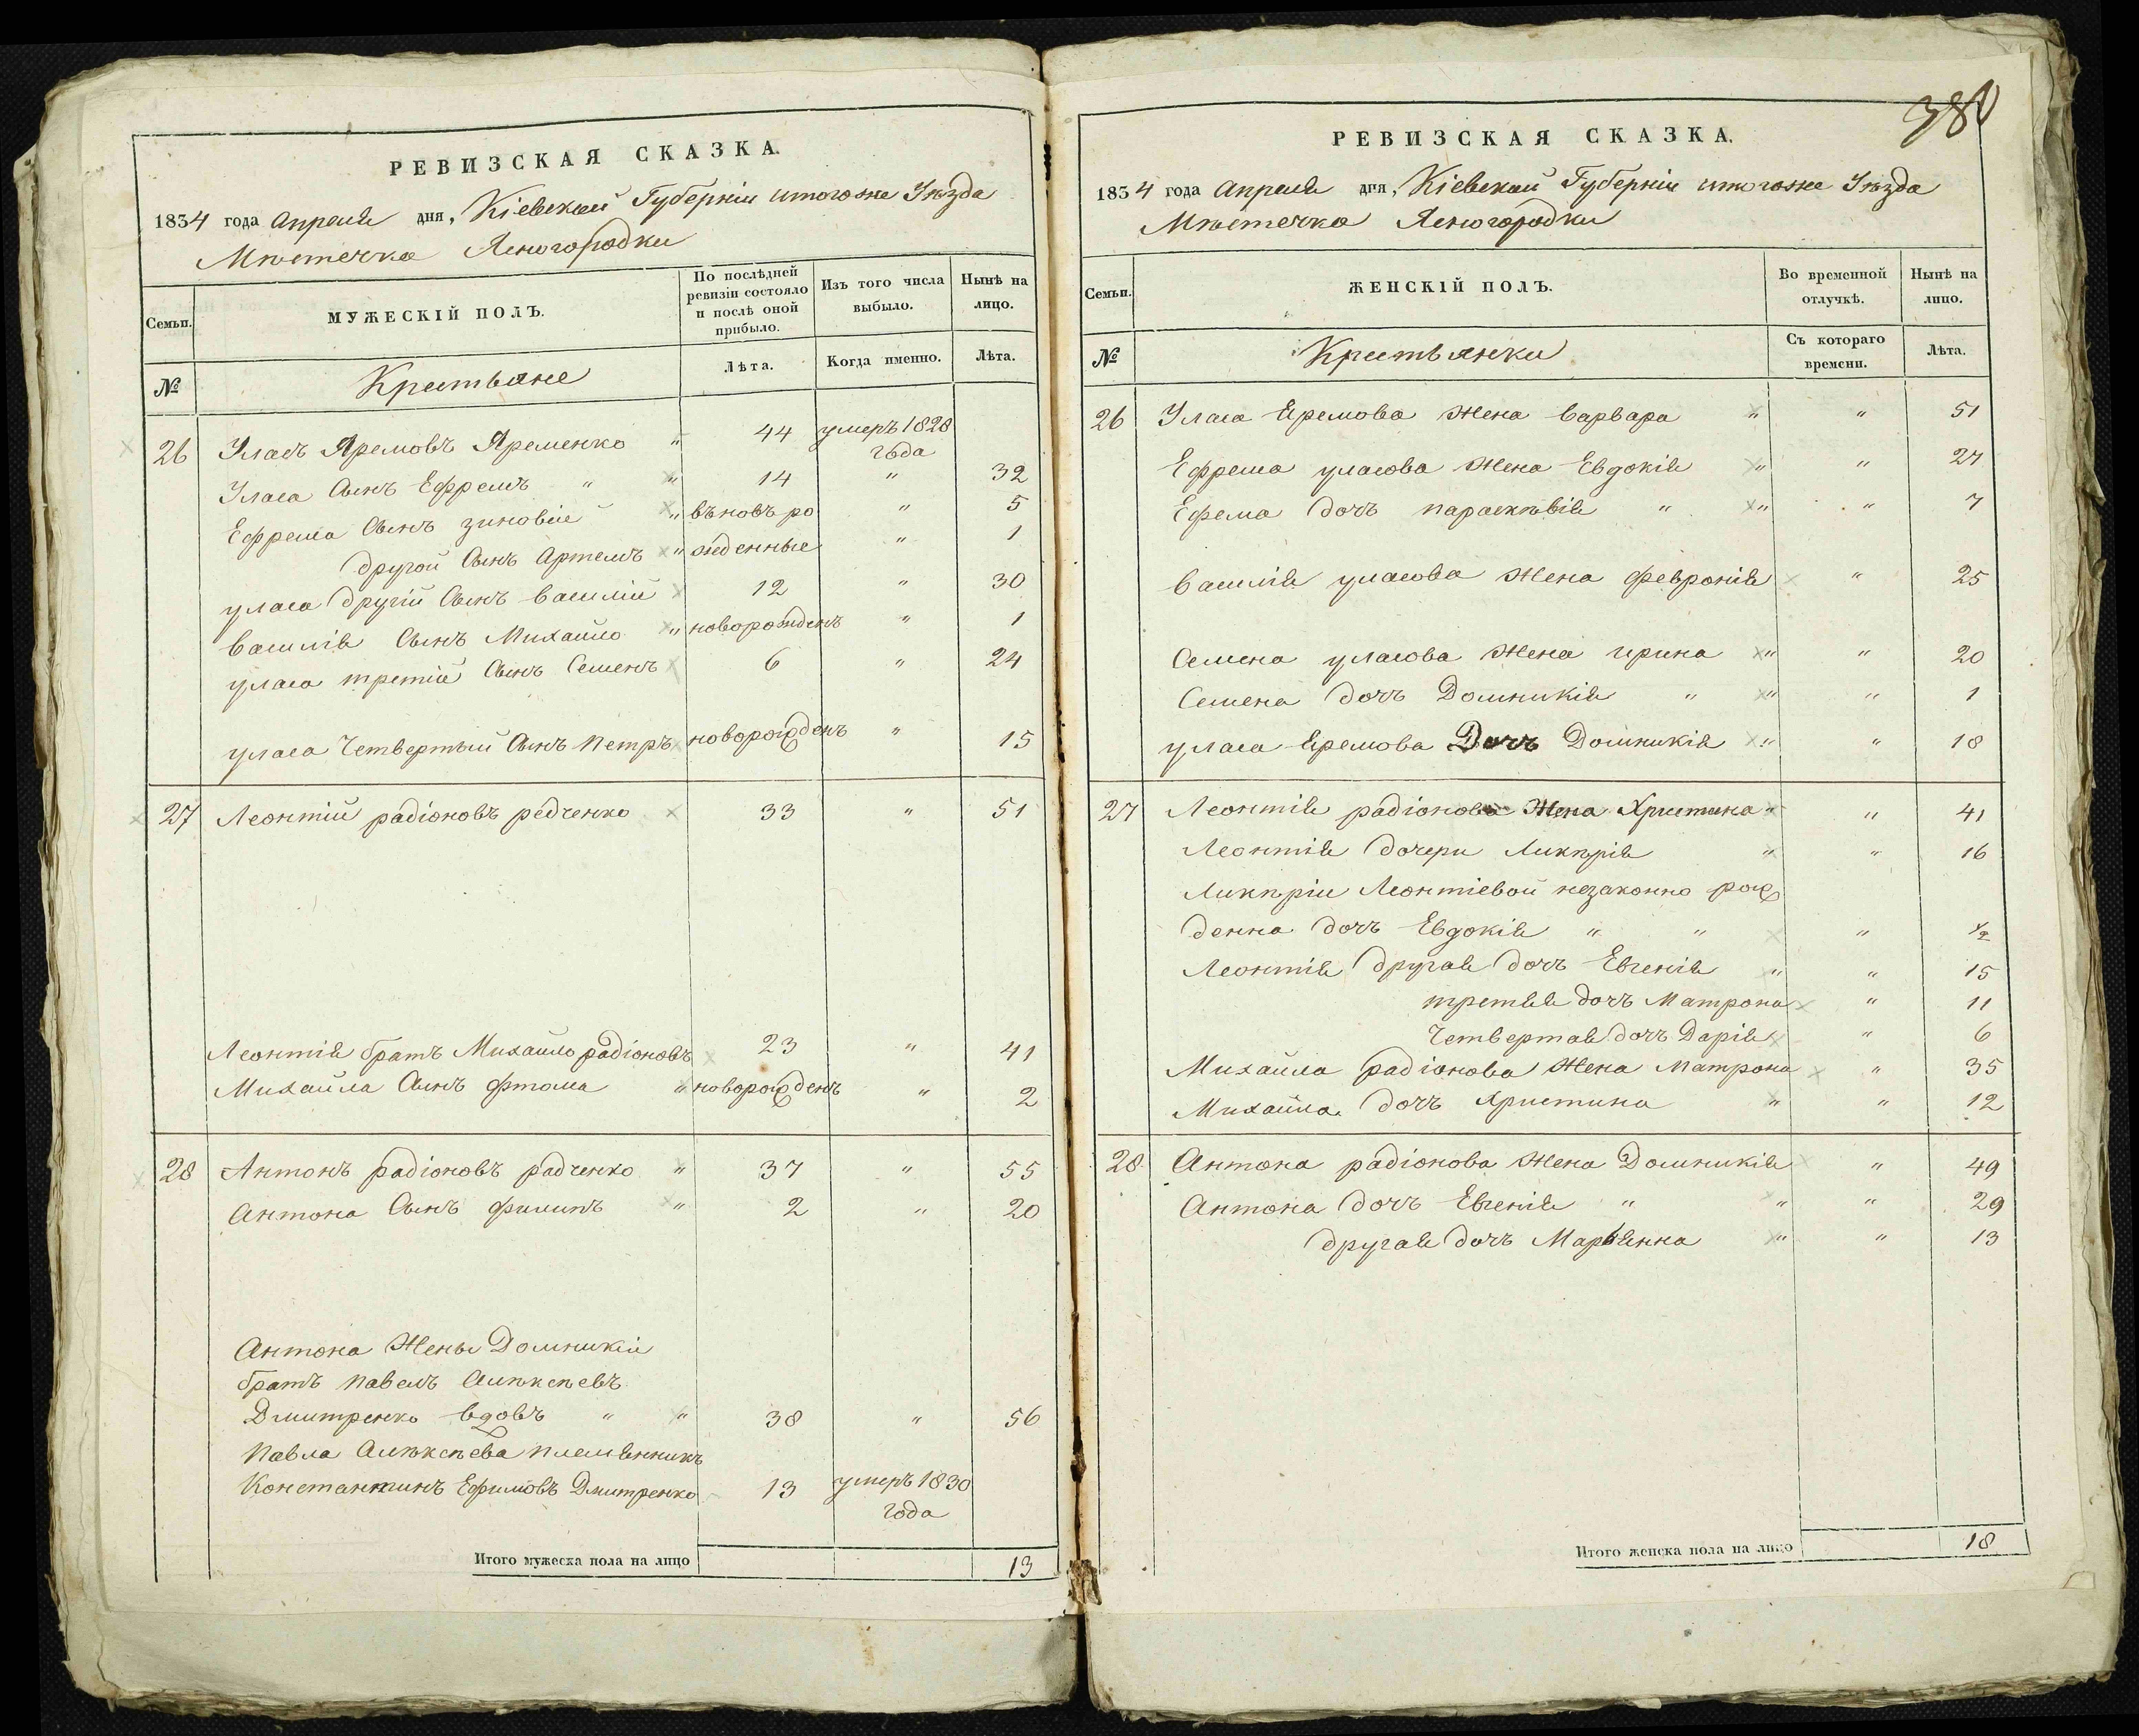 РЕВИЗСКАЯ СКАЗКА.
1834 года Апреля дня, Кіевской Губерніи итогоже Уѣзда
Мѣстечка Ясногородки
Семьи.
МУЖЕСКІЙ ПОЛЪ.
По послѣдней ревизіи состояло и послѣ оной прибыло.
Изъ того числа выбыло.
Нынѣ на лицо.
№
Крестьяне
Лѣта.
Когда именно.
Лѣта.
26 Уласъ Яремовъ Яременко " 44 умеръ 1828 года
Уласа Сынъ Ефремъ " " 14 " 32
Ефрема Сынъ зиновіе " въновь ро " 5
другой Сынъ Артемъ " жденные " 1
уласа другій Сынъ василій 12 " 30
василія Сынъ Михайло " новорожденъ " 1
уласа третій Сынъ Семенъ 6 " 24
уласа Четвертый Сынъ петръ новорожденъ " 15
27 Леонтій радіоновъ редченко 33 " 51
Леонтія братъ Михайло радіоновъ 23 " 41
Михайла Сынъ фтома " новорожденъ " 2
28 Антонъ радіоновъ радченко " 37 " 55
Антона Сынъ филипъ " 2 " 20
Антона Жены Домникіи
братъ павелъ Алѣксѣевъ
Дмитренко вдовъ " " 38 " 56
павла Алѣксѣева племянникъ
Константинъ Ефимовъ Дмитренко 13 умеръ 1830
года
Итого мужеска пола на лицо 13
380
РЕВИЗСКАЯ СКАЗКА.
1834 года Апреля дня, Кіевской Губерніи итогоже Уѣзда
Мѣстечка Ясногородки
Семьи.
ЖЕНСКІЙ ПОЛЪ.
Во временной отлучкѣ.
Нынѣ на лицо.
№
Крестьянки
Съ котораго времени.
Лѣта.
26 Уласа Яремова Жена варвара " " 51
Ефрема уласова Жена Евдокія " " 27
Ефема дочъ параскѣвія " " " 7
василія уласова Жена февронія " 25
Семена уласова Жена ирина " " 20
Семена дочъ Домникія " " " 1
уласа Яремова Дочъ Домникія " " 18
27 Леонтія радіонова Жена Христина " 41
Леонтія дочери Ликѣрія " " 16
Ликѣріи Леонтіевой незаконно рож
денна дочъ Евдокія " " " ½
Леонтія другая дочъ Евгенія " " 15
третяя дочъ Матрона " 11
Четвертая дочъ Дарія " 6
Михайла радіонова Жена Матрона " 35
Михайла дочъ Христина " " 12
28 Антона радіонова Жена Домникія " 49
Антона дочъ Евгенія " " " 29
другая дочъ Марьянна " " 13
Итого женска пола на лицо 18